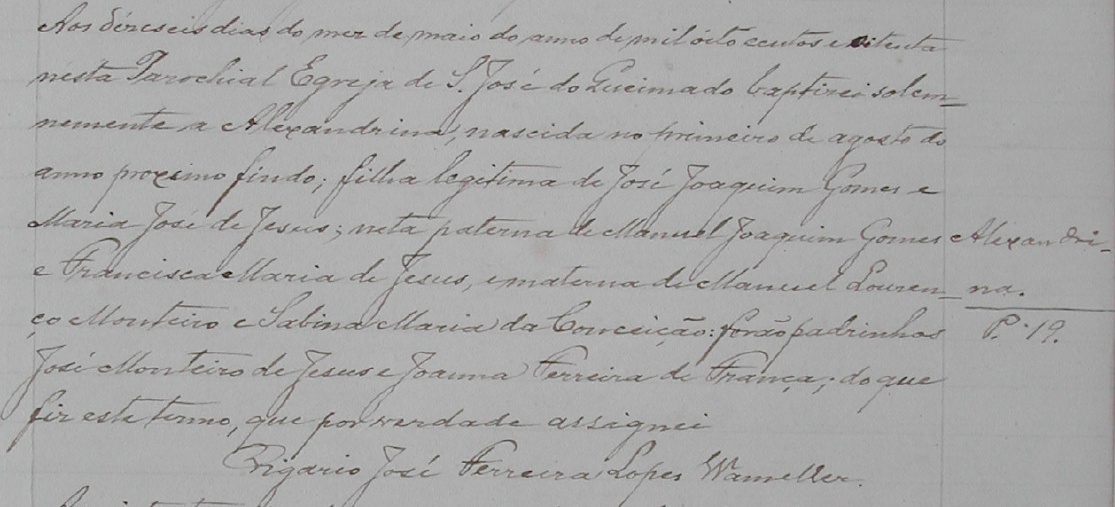 Aos dézeseis dias do mez de maio do anno de mil óito centos e oitenta
nesta Parochial Egreja de S. José do Queimado baptizei solem-
nemente a Alexandrina, nascida no primeiro de agosto do
anno proximo findo; filha legitima de José Joaquim Gomes e
Maria José de Jesus; neta paterna de Manuel Joaquim Gomes
e Francisca Maria de Jesus, e materna de Manuel Louren-
ço Monteiro e Sabina Maria da Conceição: forão padrinhos
José Monteiro de Jesus e Joanna Ferreira de França; do que
fiz este termo, que por verdade assignei
Vigario José Ferreira Lopes Wameller.
Alexandri-
na.
P. 19.